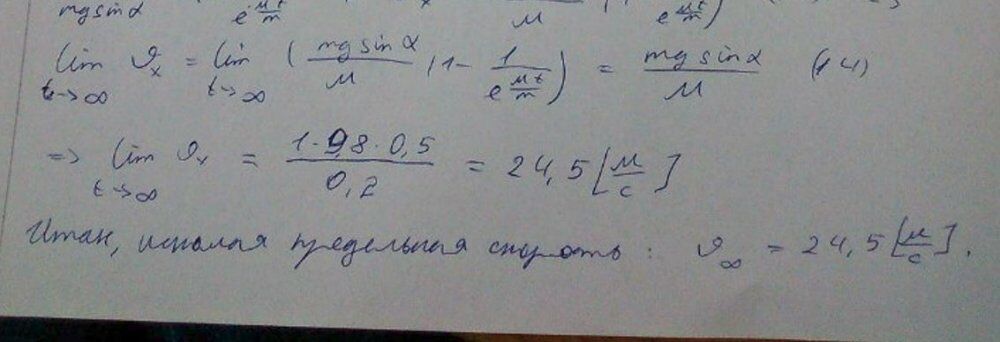 mg sin α e^{μt/m} μ e^{μt/m})
lim ϑ_x = lim (mg sin α / μ (1 - 1 / e^{μt/m}) = mg sin α / μ (14)
t→∞ t→∞
=> lim ϑ_x = 1·9,8·0,5 / 0,2 = 24,5 [м/с]
t→∞
Итак, искомая предельная скорость: ϑ_∞ = 24,5 [м/с].